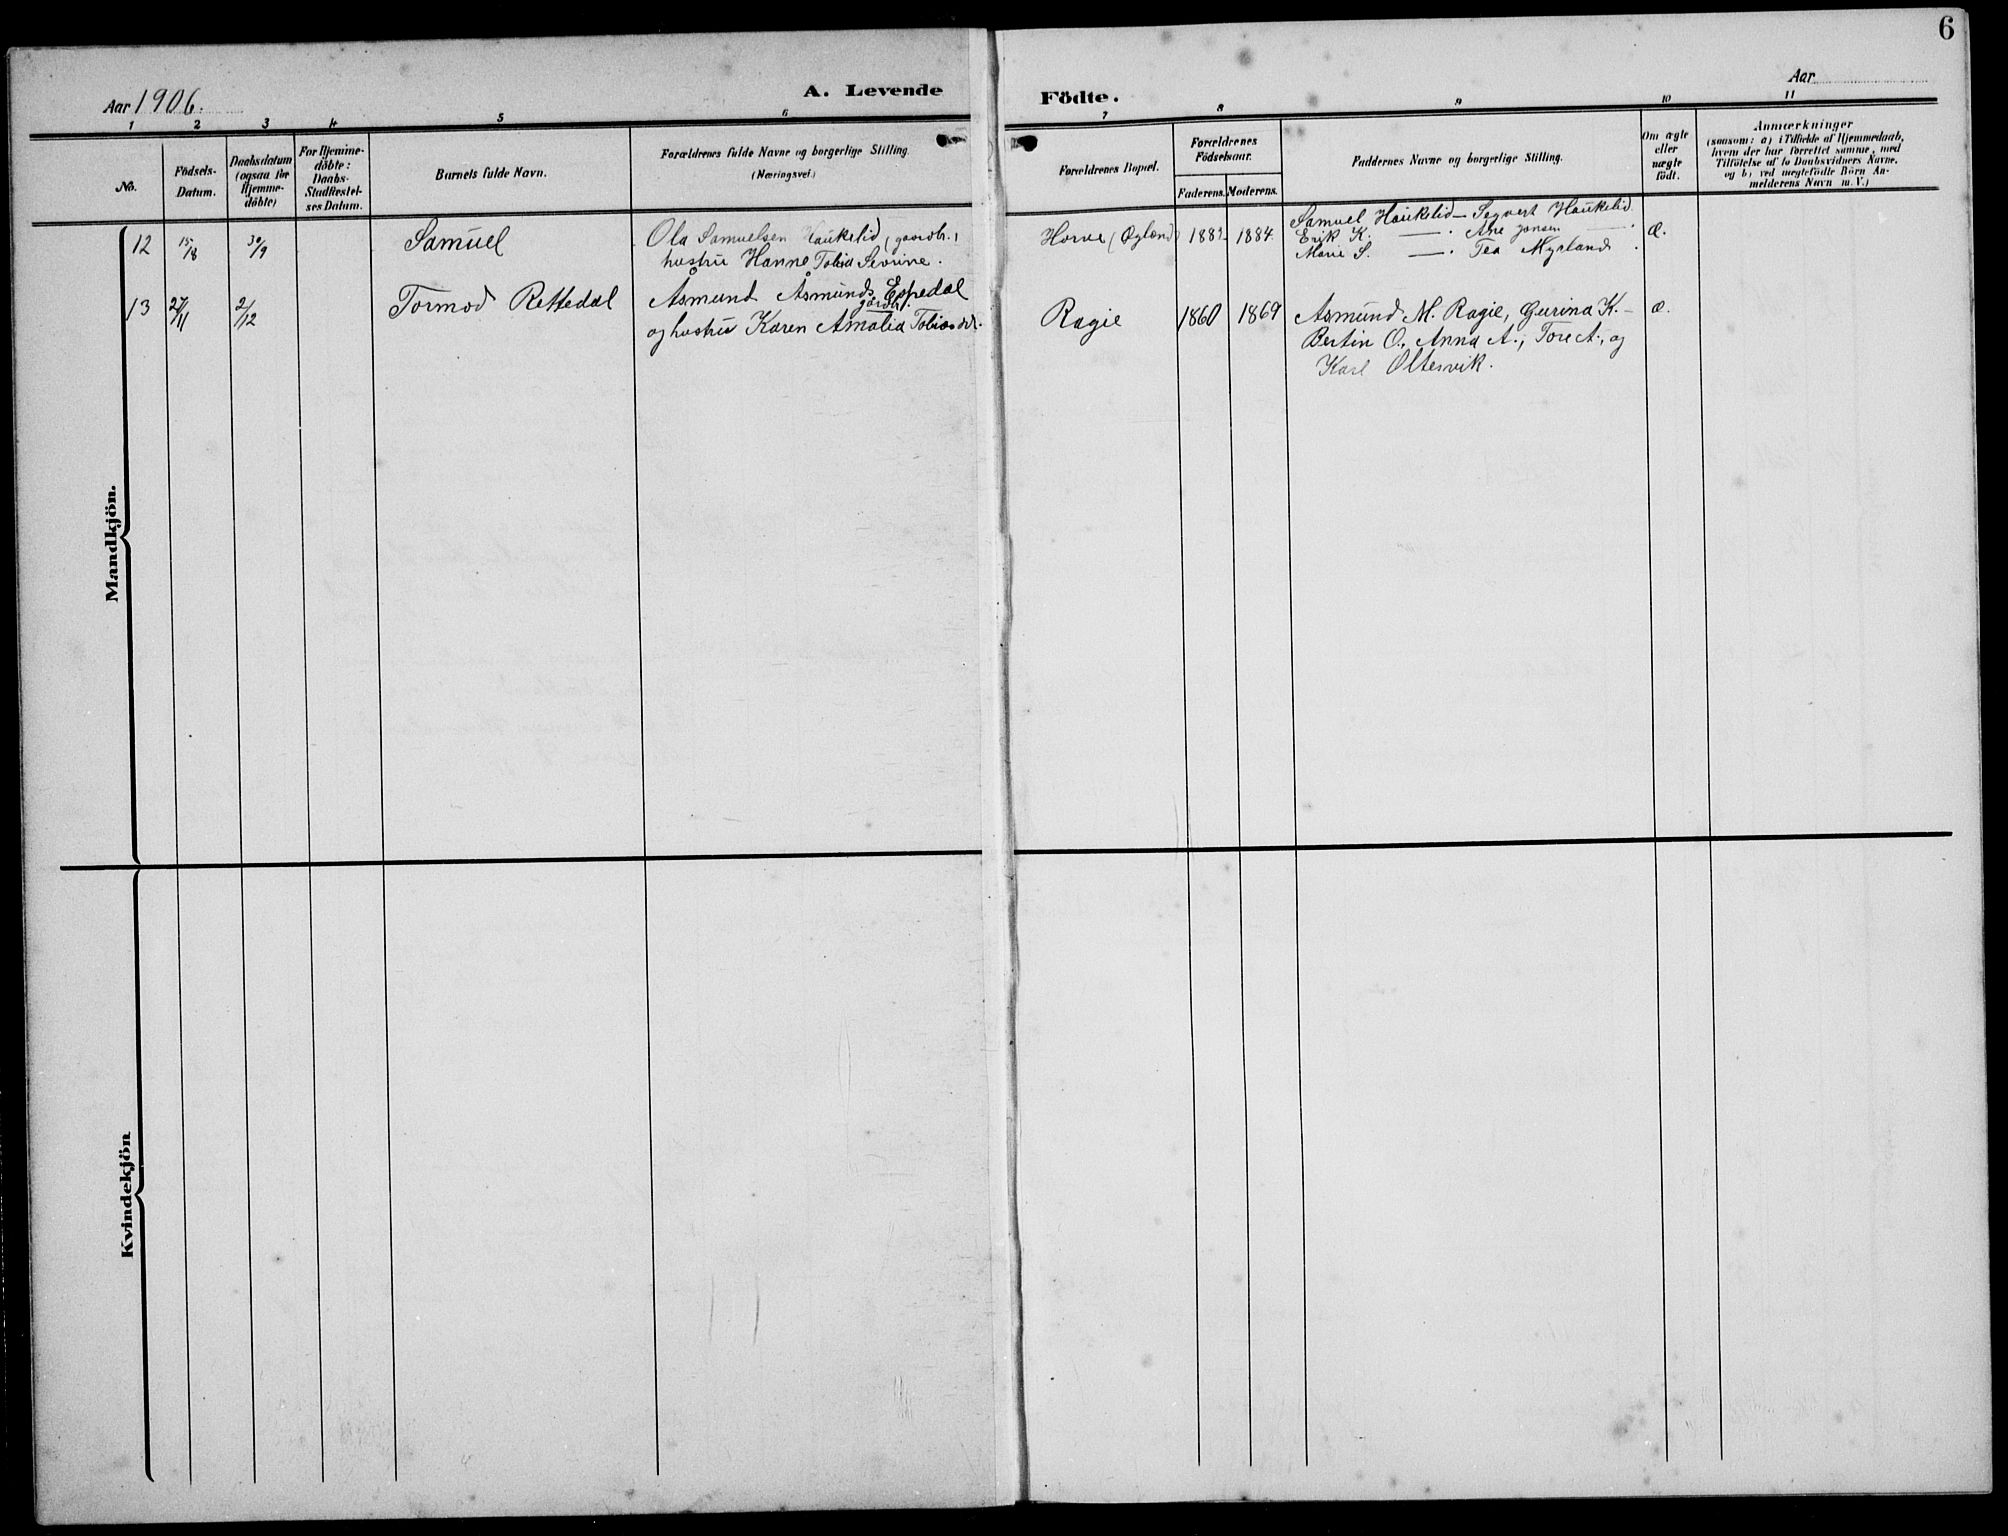 6
Aar 1906.
A. Levende
Födte.
Aar
1 2 3 4 5 6 7 8 9 10 11
No.
Födsels-
Datum.
Daabsdatum
(ogsaa for
Hjemme-
döbte)
For Hjemme-
döbte:
Daabs-
Stadfæstel-
ses Datum.
Barnets fulde Navn.
Forældrenes fulde Navne og borgerlige Stilling
(Næringsvei.)
Forældrenes Bopæl.
Forældrenes
Födselsaar.
Faderens. Moderens.
Faddernes Navne og borgerlige Stilling.
Om ægte
eller
uægte
födt.
Anmærkninger
(saasom: a) i Tilfælde af Hjemmedaab,
hvem der har forrettet samme, med
Tilföielse af to Daabsvidners Navne.
og b) ved uægtefödte Börn An-
melderens Navn m. V.)
Mandkjön.
12 15/8 30/9 Samuel
Ola Samuelsen Haukelid (gaardb.)
hustru Hanne Tobia Severine.
Horve (Øglænd) 1884.
Samuel Haukelid – Sigvert Haukelid
Erik K. — . Ane Jonsen — .
Marie S. — . Tea Myrland .
æ.
13 27/11 2/12 Tormod Rettedal
Åsmund Åsmunds. Espedal
gårdbr.
og hustru Karen Amalia Tobiasdt.
Ragie 1860 1869
Asmund M. Ragie, Gurina K. –
Bertin O., Anna A., Tore A., og
Karl Oltesvik.
æ.
Kvindekjön